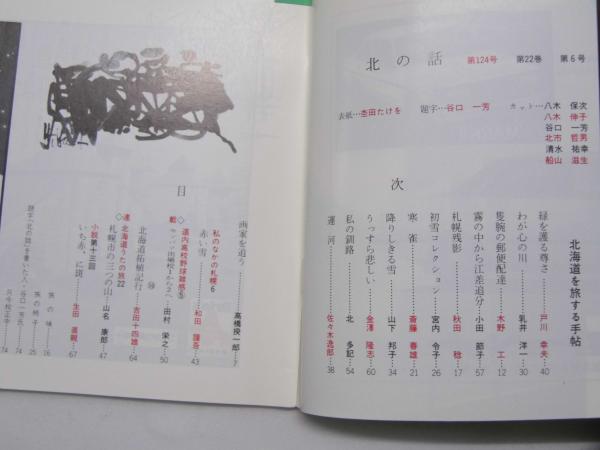 北の話 第124号 第22巻 第6号
表紙…杢田たけを
題字…谷口一芳
カット…八木保次
八木伸子
谷口一芳
北市哲男
清水祐幸
船山滋生
北海道を旅する手帖
目次
緑を護る尊さ…戸川幸夫…40
わが心の川…乳井洋一…30
隻腕の郵便配達…木野工…12
霧の中から江差追分…小田節子…57
札幌残影…秋田稔…17
初雪コレクション…宮内令子…26
寒雀…斎藤春雄…21
降りしきる雪…山下邦子…34
うっすら悲しい…金澤隆志…60
私の釧路…北多記…54
運河…佐々木逸郎…38
画家を追う…高橋揆一郎…7
私のなかの札幌6
赤い雪…和田謹吾…43
道内高校野球雑感⑤
…田村栄之…50
北海道拓植記行…吉田十四雄…64
◇連載◇
北海道うたの旅22
札幌市の三つの山…山名康郎…47
小説第十三回
いち赤、に斑…生田直親…67
旅の味…16
旅の椅子…25
題字「北の話」を書いた人・谷口一芳氏…74
只今校正中…74